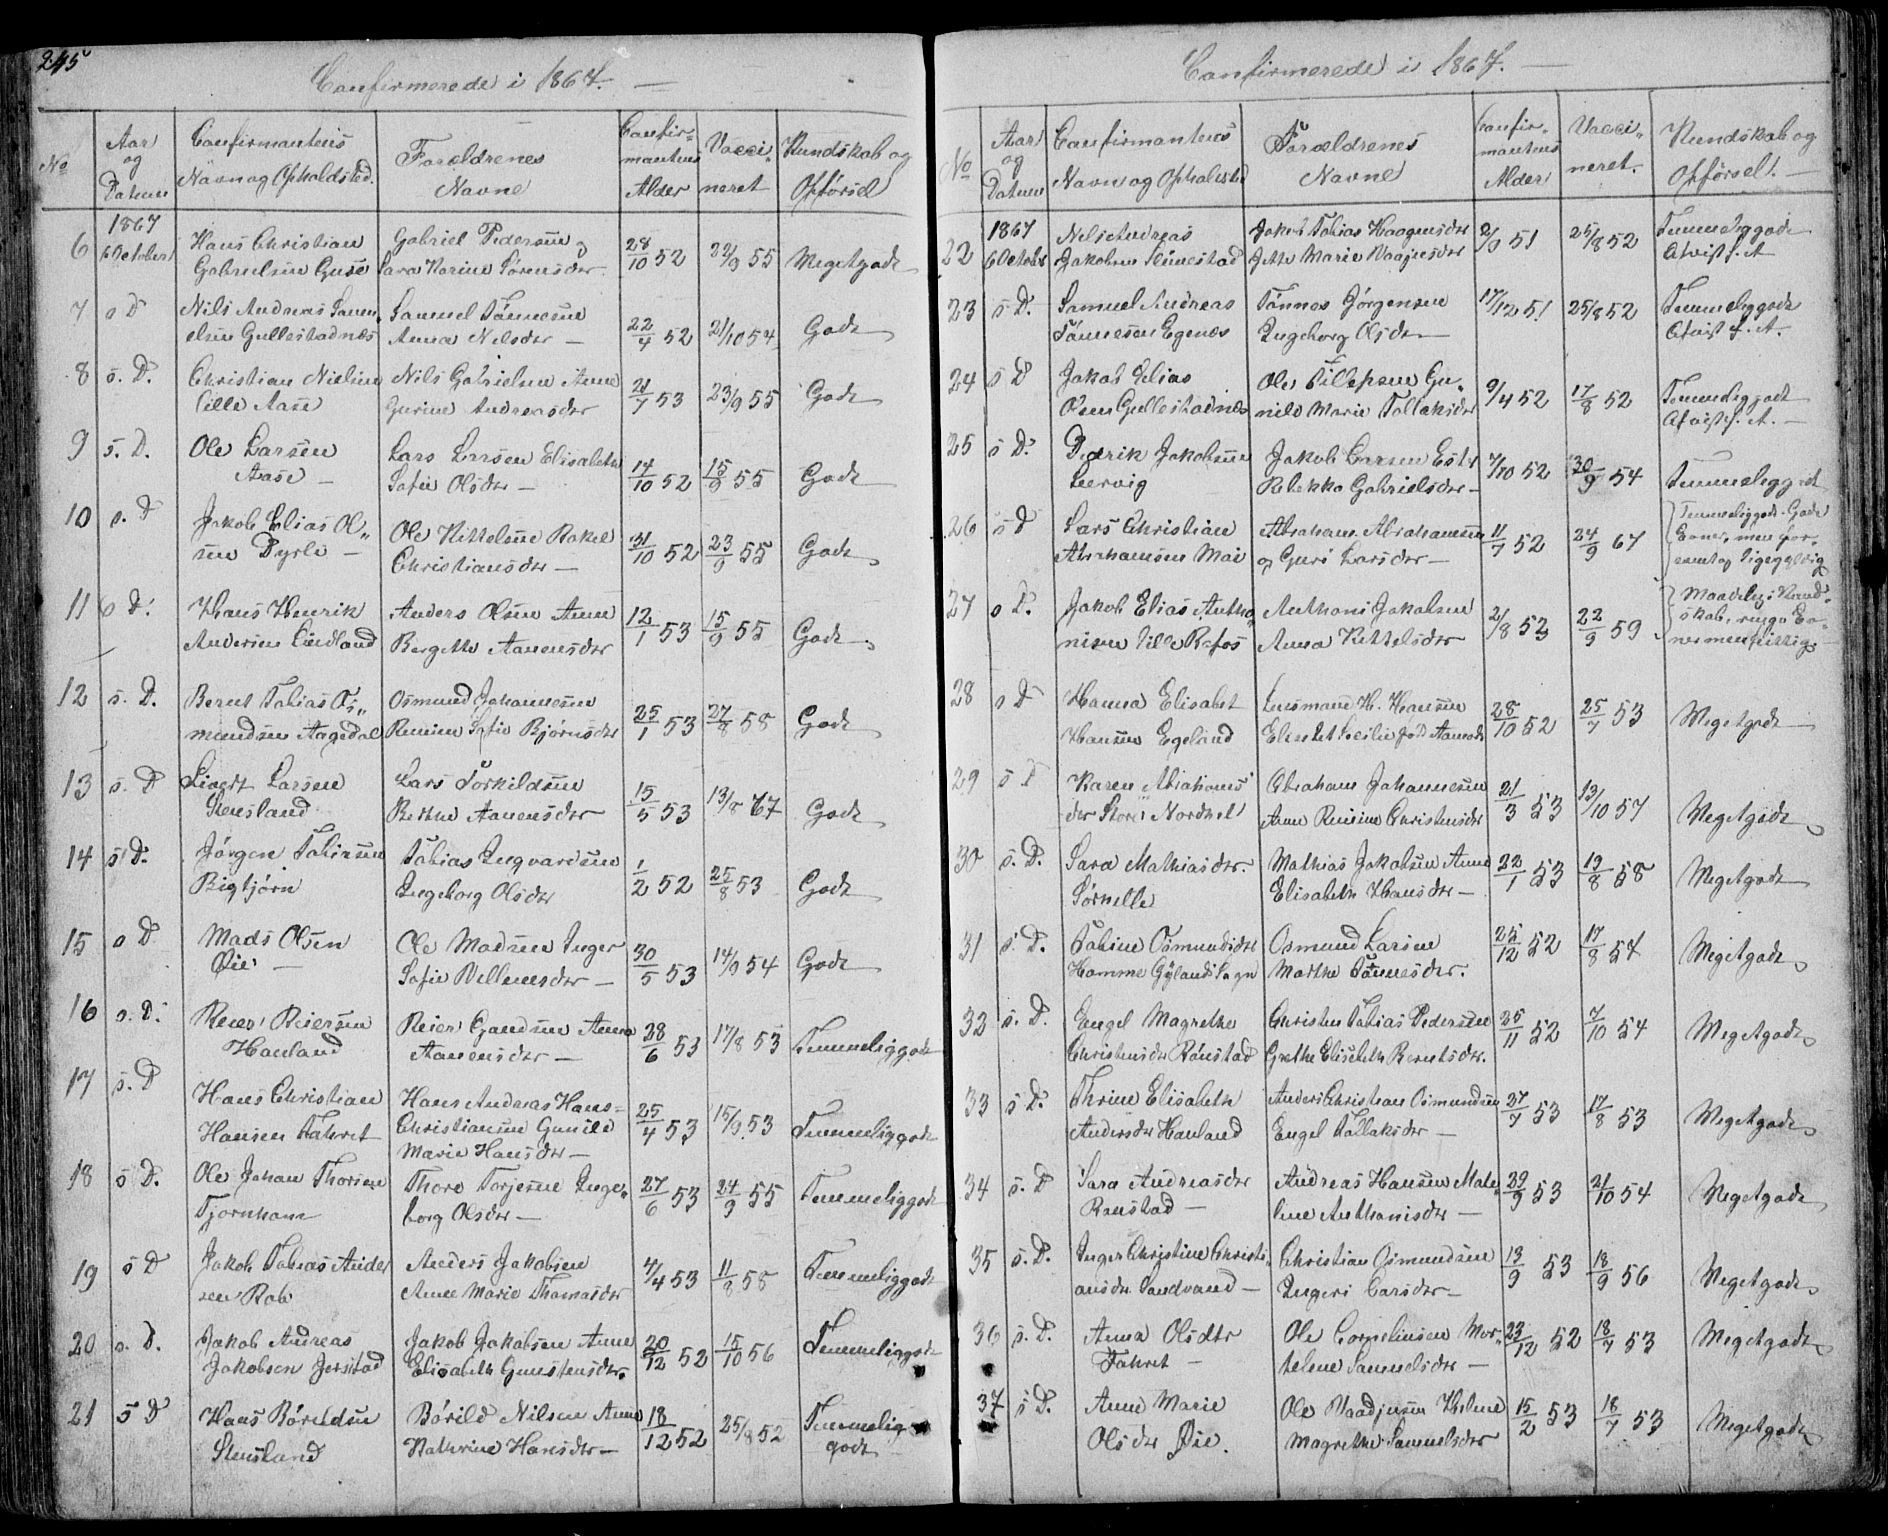 245
Confirmerede i 1867.
No | Aar og Datum | Confirmantens Navn og Opholdsted. | Forældrenes Navne | Confirmantens Alder | Vaccineret | Kundskab og Opførsel
6 | 1867 6 October | Hans Christian Gabrielsen Guse | Gabriel Pedersen og Sara Karine Sørensdtr | 28/10 52 | 22/9 55 | Megetgodt
7 | s D | Nils Andreas Samuelsen Gullestadnæs | Samuel Tønnesen Anna Nilsdtr — | 22/4 52 | 21/10 54 | Godt
8 | s. D. | Christian Nielsen Lille Aase | Nils Gabrielsen Anne Gurine Andreasdtr | 21/7 53 | 23/9 55 | Godt
9 | s. D. | Ole Larsen Aase — | Lars Larsen Elisabeth Sofie Olsdtr — | 14/10 52 | 15/8 55 | Godt
10 | s. D | Jakob Elias Olsen Dyrli — | Ole Kittelsen Rakel Christiansdtr — | 31/10 52 | 23/9 55 | Godt
11 | s D. | Hans Henrik Andersen Lindland | Anders Olsen Anne Bergitte Aanensdtr | 12/1 53 | 15/9 55 | Godt
12 | s. D. | Bernt Tobias Osmundsen Aagedal | Osmund Johannesen Reinine Sofie Bjørnsdtr | 25/1 53 | 27/8 58 | Godt
13 | s. D | Sivert Larsen Stensland | Lars Torkildsen Berthe Aanensdtr | 15/5 53 | 13/8 67 | Godt
14 | s D. | Jørgen Tobiasen Bigtjørn | Tobias Ingvardsen Ingeborg Olsdtr | 1/2 52 | 25/8 53 | Godt
15 | s D | Mads Olsen Øie — | Ole Madsen Inger Sofie Villumsdtr — | 30/5 53 | 14/9 54 | Godt
16 | s. D. | Reier Reiersen Hauland | Reier Gundsen Anna Aanensdtr — | 28/6 53 | 17/8 53 | Temmeliggodt
17 | s. D | Hans Christian Hansen Fahret | Hans Andreas Hans= Christiansen Gunild Marie Hansdtr — | 25/4 53 | 15/9 53 | Temmeliggodt
18 | s D. | Ole Johan Thorsen Tjørnhom | Thore Torjesen Ingeborg Olsdtr — | 27/6 53 | 24/9 55 | Temmeliggodt
19 | s D | Jakob Tobias Andersen Rob | Anders Jakobsen Anne Marie Thomasdtr | 4/4 53 | 11/8 58 | Temmeliggodt
20 | s. D. | Jakob Andreas Jakobsen Jerstad | Jakob Jakobsen Anne Elisabeth Gunstensdtr. | 20/12 52 | 15/10 56 | Temmeliggodt
21 | s D | Hans Børildsen Stensland | Børild Nilsen Anne Kathrine Hansdtr — | 18/12 52 | 25/8 52 | Temmelig godt
Confirmerede i 1867. —
No | Aar og Datum | Confirmantens Navn og Opholdsted | Forældrenes Navne | Confirmantens Alder | Vaccineret. | Kundskab og Opførsel. —
22 | 1867 6 October | Nels Andreas Jakobsen Skinestad | Jakob Tobias Haagensdtr Jette Marie Vaajesdtr | 51 | 25/8 52 | Temmeliggodt
23 | s D. | Samuel Andreas Tønnesen Egenæs | Tønnes Jørgensen Ingeborg Olsdtr | 17/12 51 | 25/8 52 | Temmeliggodt
24 | s D | Jakob Elias Olsen Gullestadnæs | Ole Tillefsen Gunild Marie Tollaksdtr | 9/4 52 | 17/8 52 | Temmeliggodt
25 | s D. | Didrik Jakobsen Lervig | Jakob Larsen Ester Rebekka Gabrielsdtr — | 7/10 52 | 30/9 54 | Temmeliggodt
26 | s D | Lars Christian Abrahamsen Moi | Abraham Abrahamsen og Guri Larsdtr — | 11/7 52 | 24/9 67 | Temmeliggodt. Gode Evner, men forresten lige gyldig
27 | s D. | Jakob Elias Anthonisen Lille Refos | Anthoni Jakobsen Anna Kittelsdtr | 2/8 52 | 22/9 59 | Maadelig Kundskab, ringe Evner men flittig
28 | s D | Hanna Elisabet Hansen Egeland | Lensmand H. Hansen Elisabet Cecilie født Aamodt | 28/10 52 | 25/7 53 | Megetgodt
29 | s D | Karen Abrahamsdtr Store Nordhel | Abraham Johannesen Anne Reinine Christensdtr | 21/3 53 | 13/10 57 | Megetgodt
30 | s. D. | Sara Mathiasdtr. Sørhelle | Mathias Jakobsen Anne Elisabeth Hansdtr — | 22/1 53 | 19/8 58 | Megetgodt
31 | s. D. | Tobine Osmundsdtr Homme Gylands Sogn | Osmund Larsen Marthe Tønnesdtr. | 25/12 52 | 17/8 54 | Megetgodt
32 | s. D. | Engel Magrethe Christensdtr Rønstad | Christen Tobias Pedersen Grethe Elisabeth Berntsdtr. | 25/11 52 | 7/10 54 | Megetgodt
33 | s D. | Thrine Elisabeth Andersdtr Hauland | Anders Christian Osmundsen Engel Tollaksdtr — | 27/7 53 | 17/8 53 | Megetgodt
34 | s. D | Sara Andreasdtr Rønstad — | Andreas Hansen Malene Anthonisdtr — | 29/9 53 | 21/10 54 | Megetgodt
35 | s. D. | Inger Christine Christiansdtr Sandvand — | Christian Osmundsen Ingeri Larsdtr — | 19/9 53 | 18/9 56 | Megetgodt
36 | s. D. | Anna Olsdtr Fahret — | Ole Corneliusen Mortelene Samuelsdtr — | 23/12 52 | 18/7 53 | Megetgodt
37 | s D. | Anne Marie Olsdtr Øie. | Ole Vaadjesen Helene Magrethe Samuelsdtr | 15/2 53 | 18/7 53 | Megetgodt